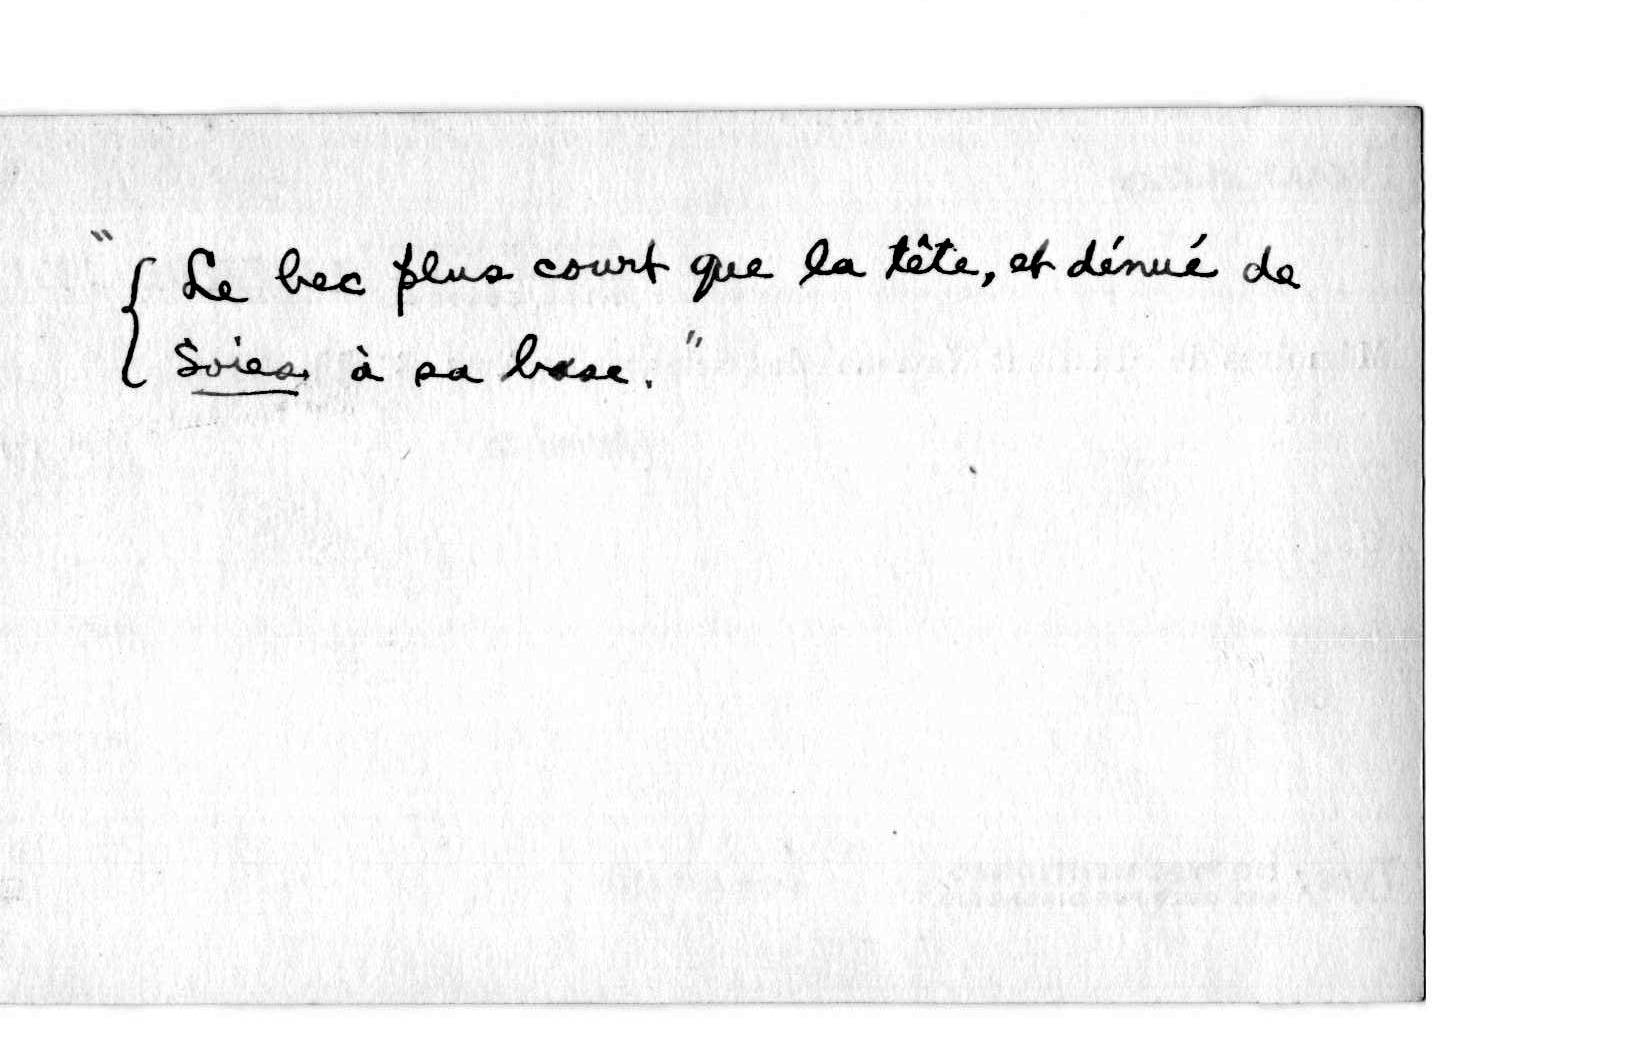 "{ Le bec plus court que la tête, et dénué de
Soies, à sa base."